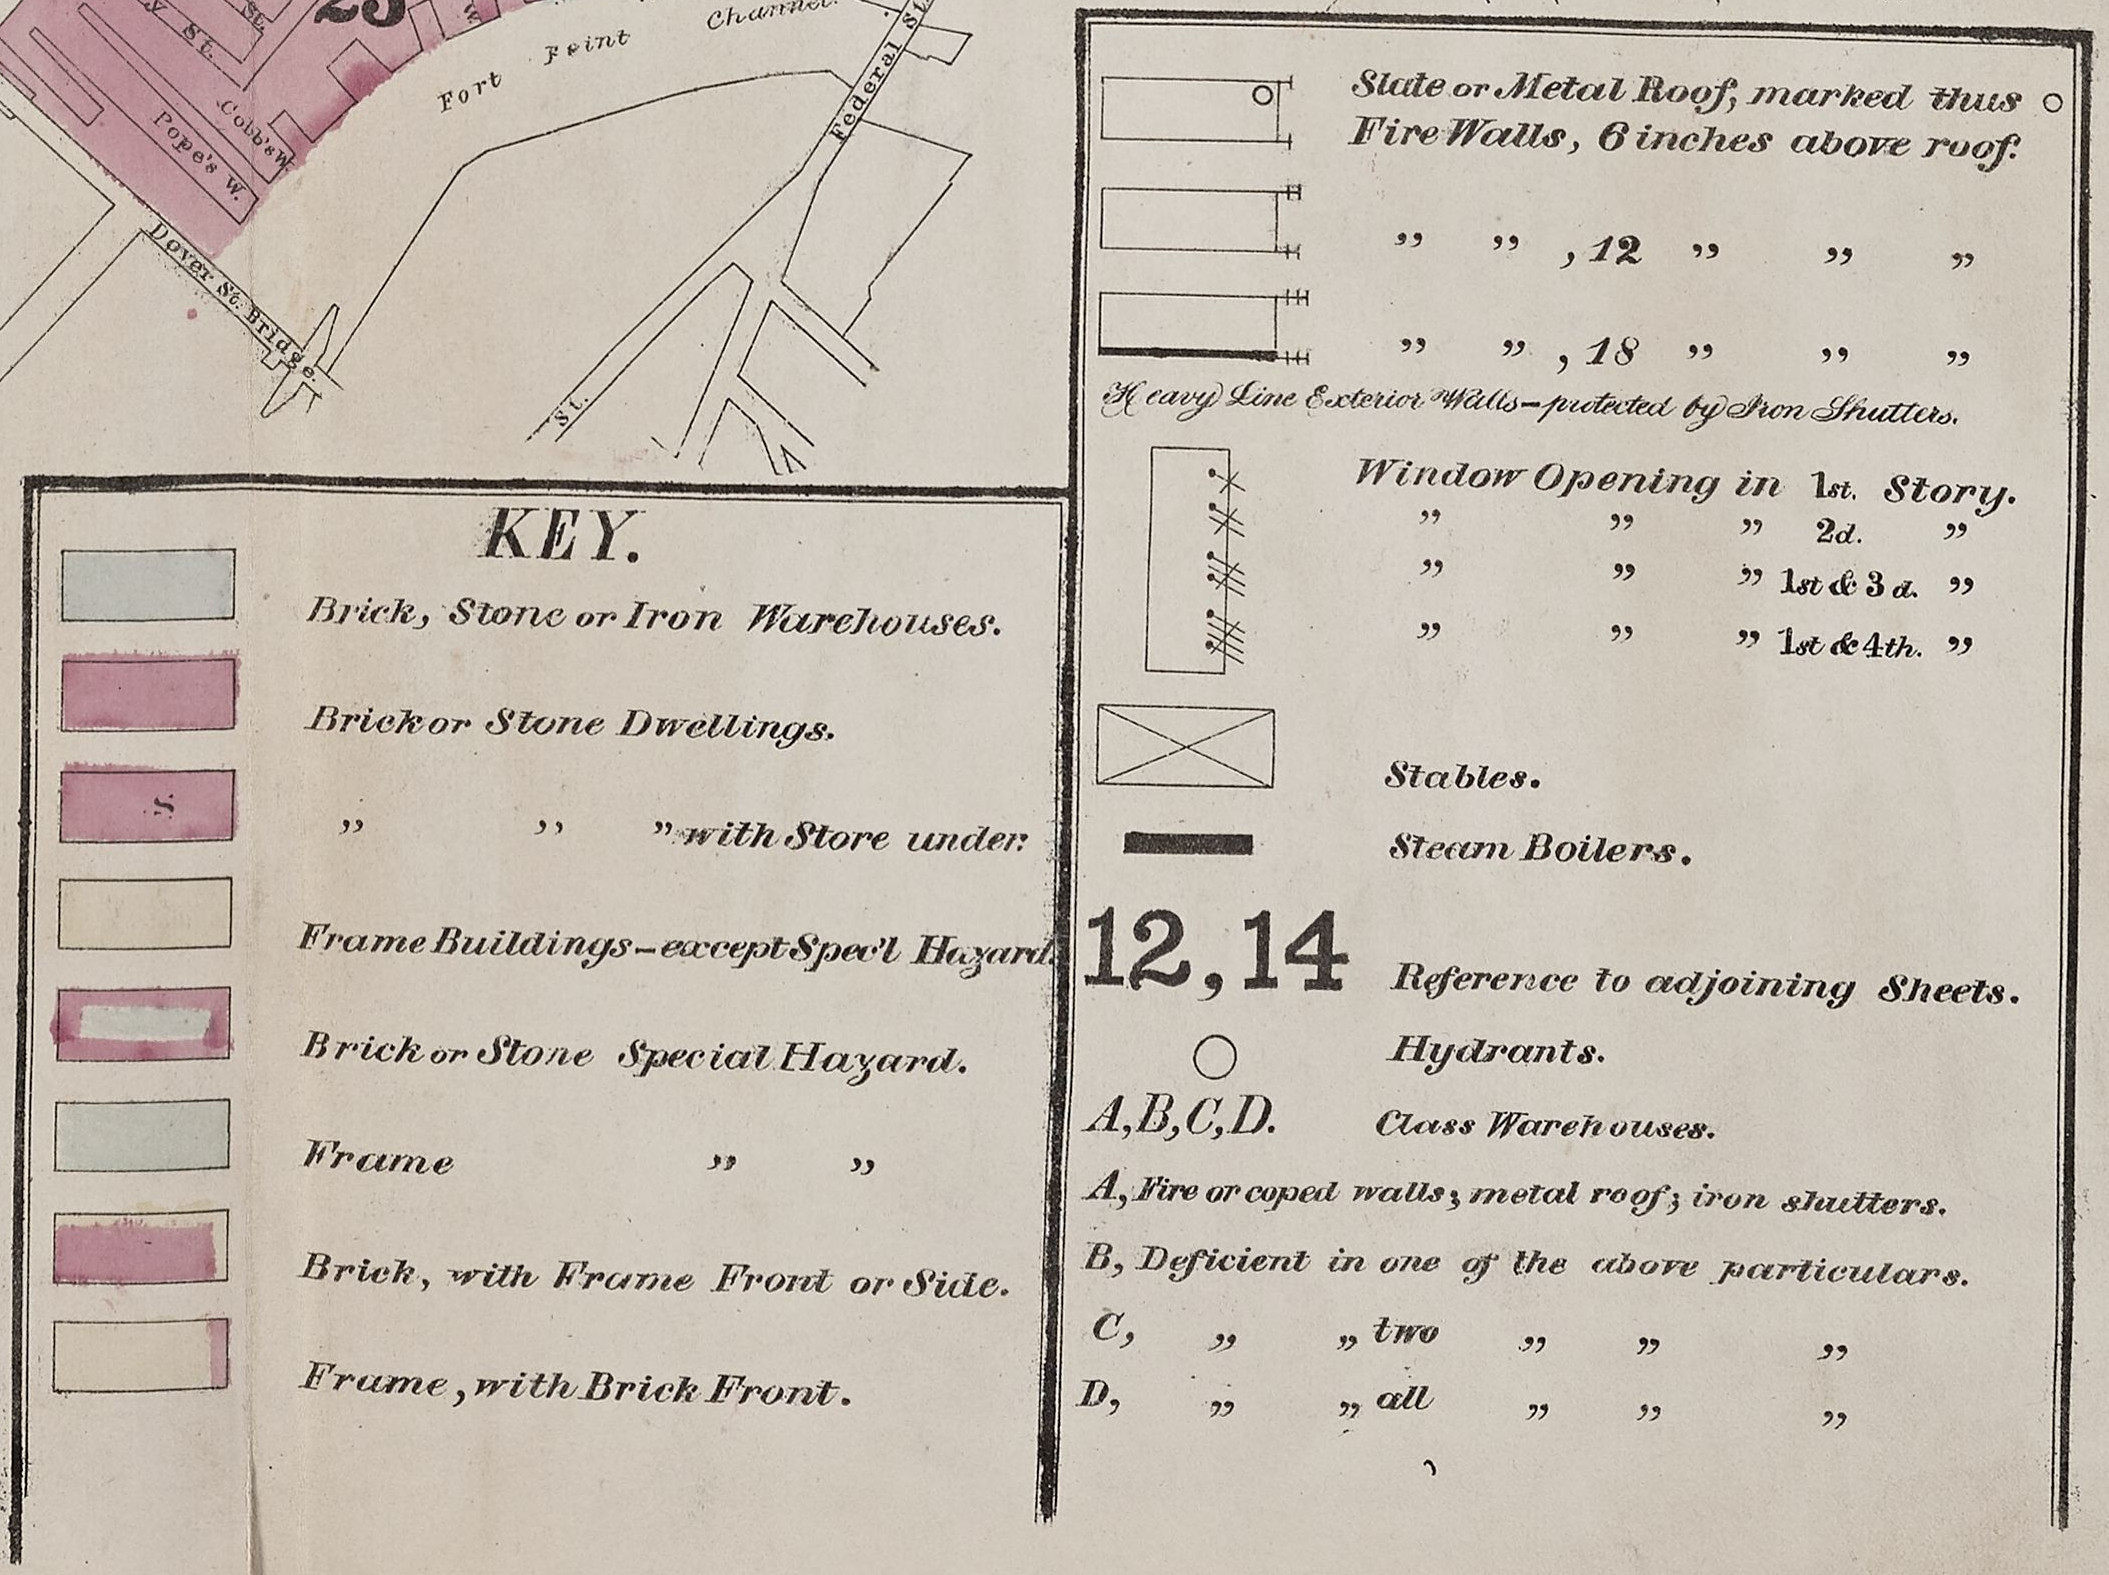 25
y St.
St.
W.
Cobb's W.
Pope's W.
Fort Point Channel.
Federal St.
Dover St. Bridge.
St.
KEY.
Brick, Stone or Iron Warehouses.
Brick or Stone Dwellings.
S
„ „ „ with Store under.
Frame Buildings – except Spec'l Hazard.
Brick or Stone Special Hazard.
Frame „ „
Brick, with Frame Front or Side.
Frame, with Brick Front.
Slate or Metal Roof, marked thus O
Fire Walls, 6 inches above roof.
„ „ , 12 „ „ „
„ „ , 18 „ „ „
Heavy Line Exterior Walls – protected by Iron Shutters.
Window Opening in 1st. Story.
„ „ „ 2d. „
„ „ „ 1st & 3d. „
„ „ „ 1st & 4th. „
Stables.
Steam Boilers.
12, 14 Reference to adjoining Sheets.
Hydrants.
A, B, C, D. Class Warehouses.
A, Fire or coped walls; metal roof; iron shutters.
B, Deficient in one of the above particulars.
C, „ „ two „ „ „
D, „ „ all „ „ „